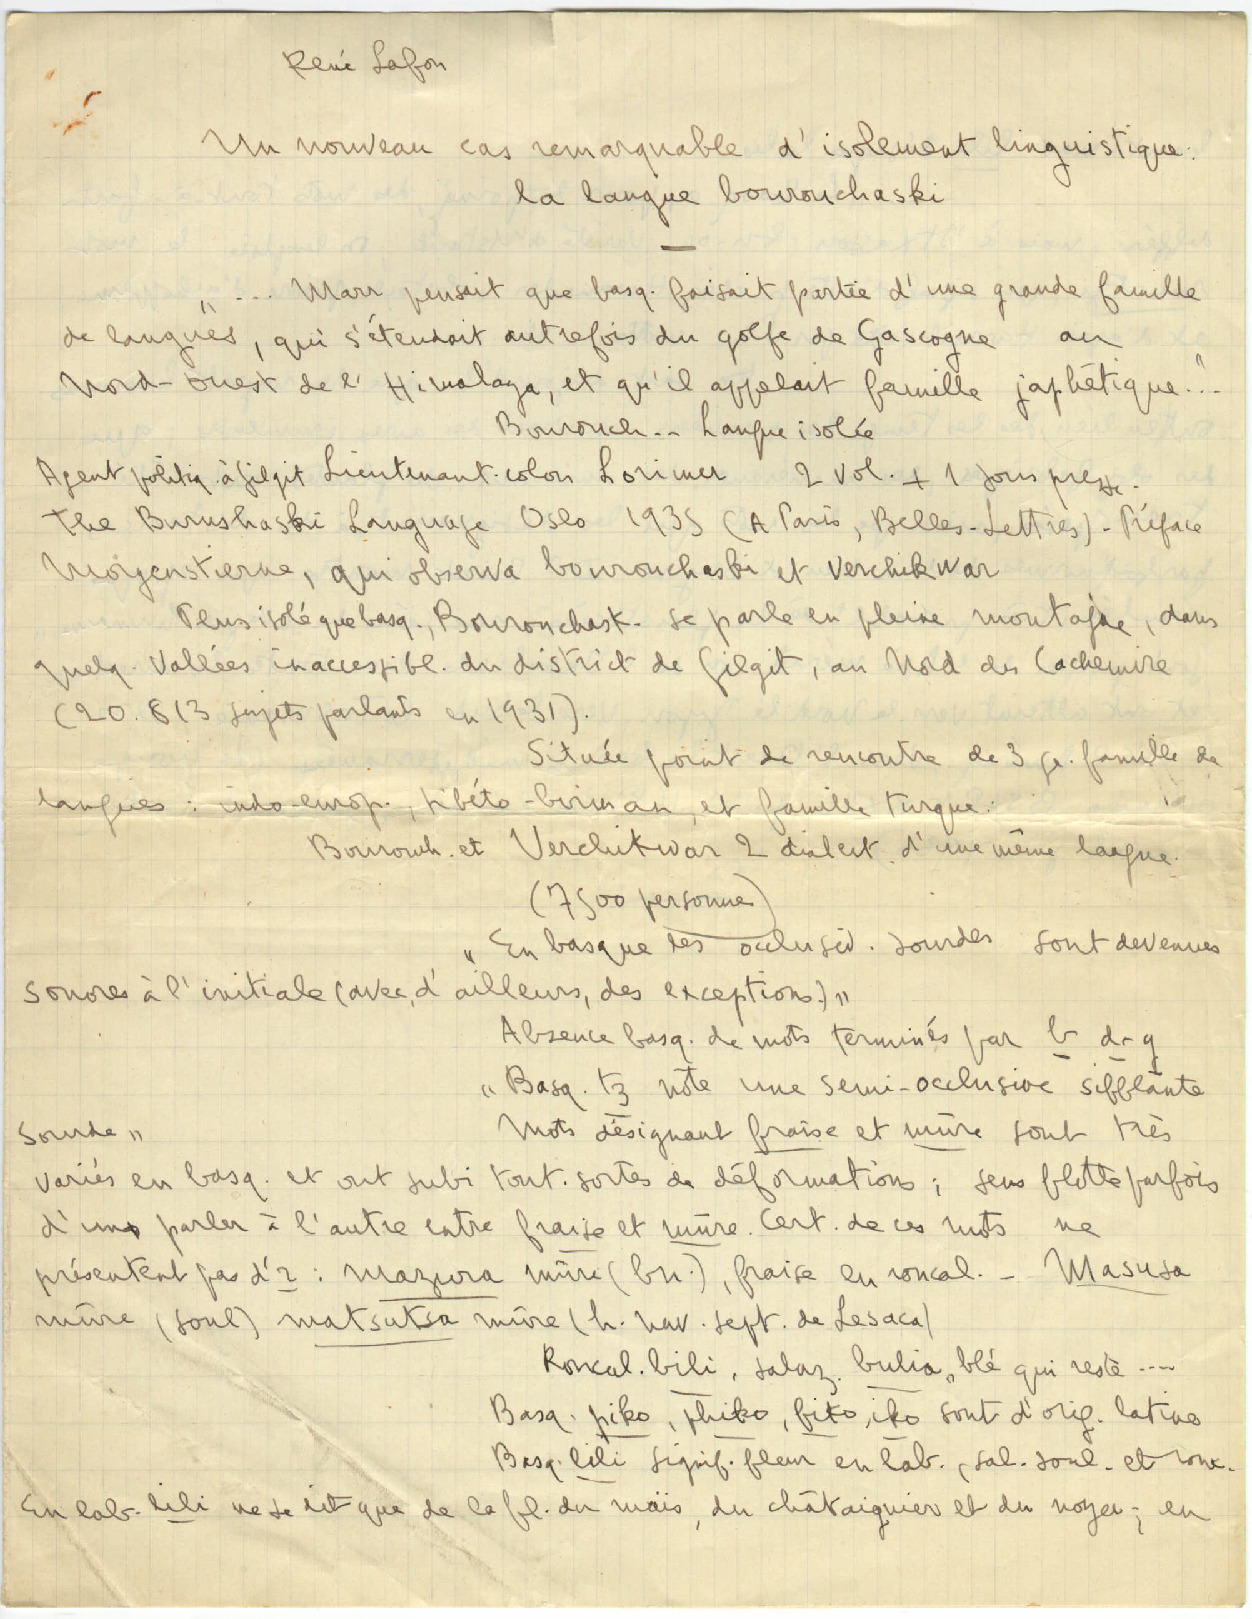 René Lafon
Un nouveau cas remarquable d'isolement linguistique :
la langue bourouchaski
—
„ ... Marr pensait que basq. faisait partie d'une grande famille
de langues, qui s'étendait autrefois du golfe de Gascogne au
Nord-Ouest de l'Himalaya, et qu'il appelait famille japhétique..."
Bourouch.. Langue isolée
Agent politiq. à Gilgit Lieutenant-colon Lorimer 2 vol. + 1 sous presse.
The Burushaski Language Oslo 1935 (A Paris, Belles-Lettres) - Préface
Morgenstierne, qui observa bourouchaski et verchikwar
Plus isolé que basq., Bourouchask. se parle en pleine montagne, dans
quelq. vallées inaccessibl. du district de Gilgit, au Nord du Cachemire
(20.813 sujets parlants en 1931).
Située point de rencontre de 3 gr. famille de
langues : indo-europ., tibéto-birman, et famille turque.
Bourouch. et Verchikwar 2 dialect. d'une même langue.
(7500 personnes)
„ En basque les occlusiv. sourdes sont devenues
sonores à l'initiale (avec, d'ailleurs, des exceptions) „
Absence basq. de mots terminés par b d - g
„ Basq. tz note une semi-occlusive sifflante
sourde „ Mots désignant fraise et mûre sont très
variés en basq. et ont subi tout. sortes de déformations ; sens flotte parfois
d'un parler à l'autre entre fraise et mûre. Cert. de ces mots ne
présentent pas d'r : mazura mûre (bn.), fraise en roncal. - Masusa
mûre (soul) matsutsa mûre (h. nav. sept. de Lesaca)
Roncal. bili, salaz. bulia „ blé qui reste ....
Basq. piko, phiko, fiko, iko sont d'orig. latine
Basq. lili signif. fleur en lab., sal. soul. et ronc.
En lab. lili ne se dit que de la fl. du maïs, du châtaignier et du noyer ; en